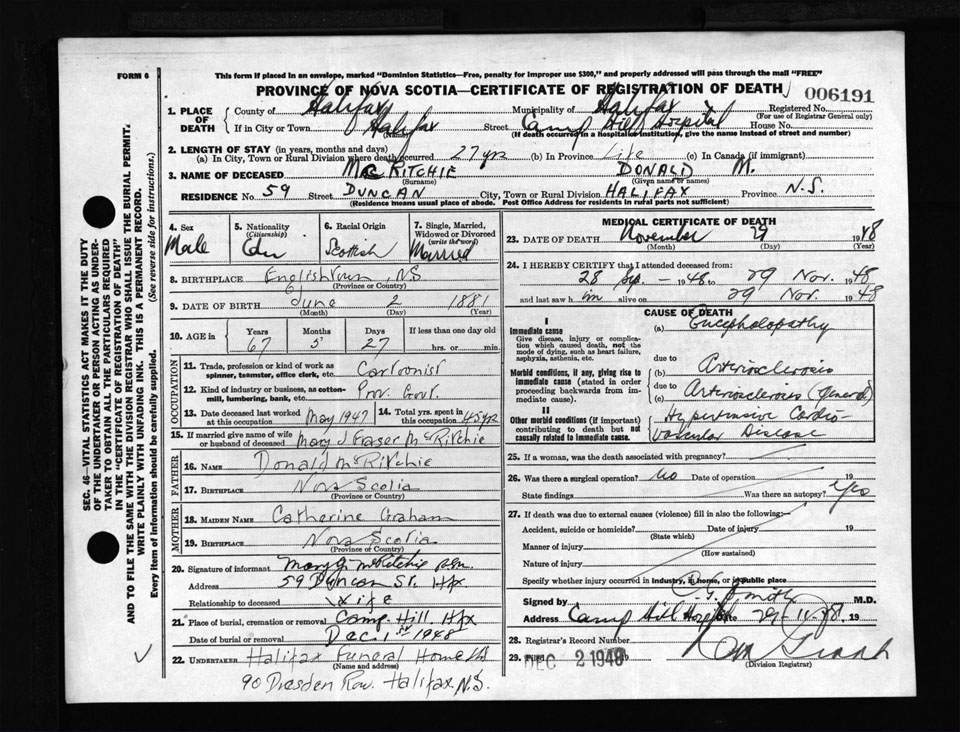 FORM 6
This form if placed in an envelope, marked "Dominion Statistics—Free, penalty for improper use $300," and properly addressed will pass through the mail "FREE"
PROVINCE OF NOVA SCOTIA—CERTIFICATE OF REGISTRATION OF DEATH
006191
1. PLACE OF DEATH
County of Halifax Municipality of Halifax Registered No.
(For use of Registrar General only)
If in City or Town Halifax Street Camp Hill Hospital House No.
(If death occurred in a hospital or institution, give the name instead of street and number)
2. LENGTH OF STAY (in years, months and days)
(a) In City, Town or Rural Division where death occurred 27 yrs (b) In Province Life (c) In Canada (if immigrant)
3. NAME OF DECEASED MacRITCHIE DONALD M.
(Surname) (Given name or names)
RESIDENCE No. 59 Street DUNCAN City, Town or Rural Division HALIFAX Province N.S.
(Residence means usual place of abode. Post Office Address for residents in rural parts not sufficient)
4. Sex Male
5. Nationality (Citizenship) Cdn
6. Racial Origin Scottish
7. Single, Married, Widowed or Divorced (write the word) Married
8. BIRTHPLACE Englishtown, NS
(Province or Country)
9. DATE OF BIRTH June 2 1881
(Month) (Day) (Year)
10. AGE in Years 67 Months 5 Days 27 If less than one day old hrs. or min.
OCCUPATION
11. Trade, profession or kind of work as spinner, teamster, office clerk, etc. Cartoonist
12. Kind of industry or business, as cotton-mill, lumbering, bank, etc. Prov. Govt.
13. Date deceased last worked at this occupation May 1947 14. Total yrs. spent in this occupation 45 yrs
15. If married give name of wife or husband of deceased Mary J Fraser McRitchie
FATHER
16. NAME Donald McRitchie
17. BIRTHPLACE Nova Scotia
(Province or Country)
MOTHER
18. MAIDEN NAME Catherine Graham
19. BIRTHPLACE Nova Scotia
(Province or Country)
20. Signature of informant Mary J. McRitchie
Address 59 Duncan St. Hfx
Relationship to deceased Wife
21. Place of burial, cremation or removal Camp Hill, Hfx
Date of burial or removal Dec. 1st 1948
22. UNDERTAKER Halifax Funeral Home
(Name and address)
90 Dresden Row. Halifax N.S.
MEDICAL CERTIFICATE OF DEATH
23. DATE OF DEATH November 29 1948
(Month) (Day) (Year)
24. I HEREBY CERTIFY that I attended deceased from:
28 Sep. – 1948 to 29 Nov. 1948
and last saw h im alive on 29 Nov. 1948
CAUSE OF DEATH
I
Immediate cause
Give disease, injury or complication which caused death, not the mode of dying, such as heart failure, asphyxia, asthenia, etc.
(a) Encephalopathy
due to
Morbid conditions, if any, giving rise to immediate cause (stated in order proceeding backwards from immediate cause).
(b) Arteriosclerosis
due to
(c) Arteriosclerosis (general)
II
Other morbid conditions (if important) contributing to death but not causally related to immediate cause.
Hypertensive Cardio-
vascular Disease
25. If a woman, was the death associated with pregnancy?
26. Was there a surgical operation? No Date of operation 19
State findings Was there an autopsy? Yes
27. If death was due to external causes (violence) fill in also the following:—
Accident, suicide or homicide? Date of injury 19
(State which)
Manner of injury
(How sustained)
Nature of injury
Specify whether injury occurred in industry, in home, or in public place
Signed by Smith M.D.
Address Camp Hill Hosp Date 19
28. Registrar's Record Number
29. Filed DEC 2 1948
(Division Registrar)
SEC. 46—VITAL STATISTICS ACT MAKES IT THE DUTY OF THE UNDERTAKER OR PERSON ACTING AS UNDERTAKER TO OBTAIN ALL THE PARTICULARS REQUIRED IN THE "CERTIFICATE OF REGISTRATION OF DEATH" AND TO FILE THE SAME WITH THE DIVISION REGISTRAR WHO SHALL ISSUE THE BURIAL PERMIT.
WRITE PLAINLY WITH UNFADING INK. THIS IS A PERMANENT RECORD.
Every item of information should be carefully supplied. (See reverse side for instructions.)